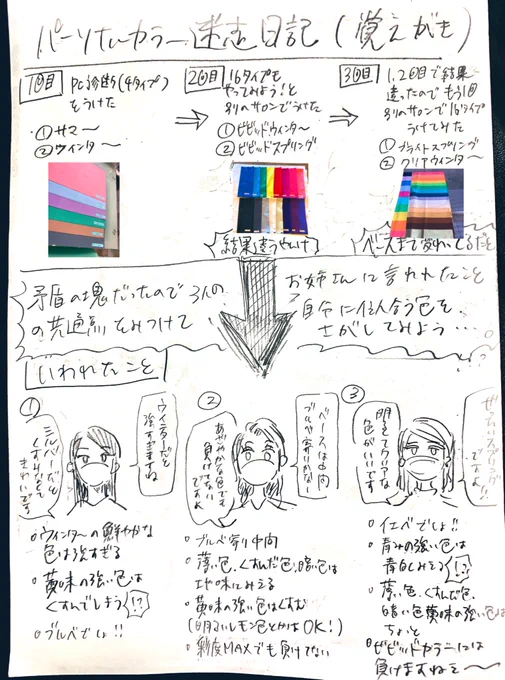 パーソナルカラー迷走日記(覚えがき)
1回目
PC診断(4タイプ)
をうけた
①サマー
②ウィンター
2回目
16タイプも
やってみよう!と
別のサロンでうけた
①ビビッドウィンター
②ビビッドスプリング
結果違うやんけ
3回目
1,2回目で結果
違ったのでもう1回
別のサロンで16タイプ
うけてみた
①ブライトスプリング
②クリアウィンター
ベースまで変わってるだと
矛盾の塊だったので3人の
お姉さんに言われたこと
の共通点をみつけて
自分に似合う色を
さがしてみよう…
いわれたこと
①
シルバーだと
きれいです
ウィンターだと
強すぎますね
○ウィンターの鮮やかな
色は強すぎる
○黄味の強い色は
くすんでしまう!?
○ブルベでしょ!!
②
あざやかな色でも
負けてない
ですよ
ベースは中向
ブルベ寄りかな!
○ブルベ寄り中向
○薄い色、くすんだ色、暗い色は
地味にみえる
○黄味の強い色はくすむ
(明るいレモン色とかはOK!)
○彩度MAXでも負けてない
③
明るくてクリアな
色がいいです
ぜったいスプリング
ですよ!!
○イエベでしょ!!
○青みの強い色は
青白くみえる!?
○薄い色、くすんだ色、
暗い色黄味の強い色は
ちょっと
○ビビッドカラーには
負けますねぇ〜